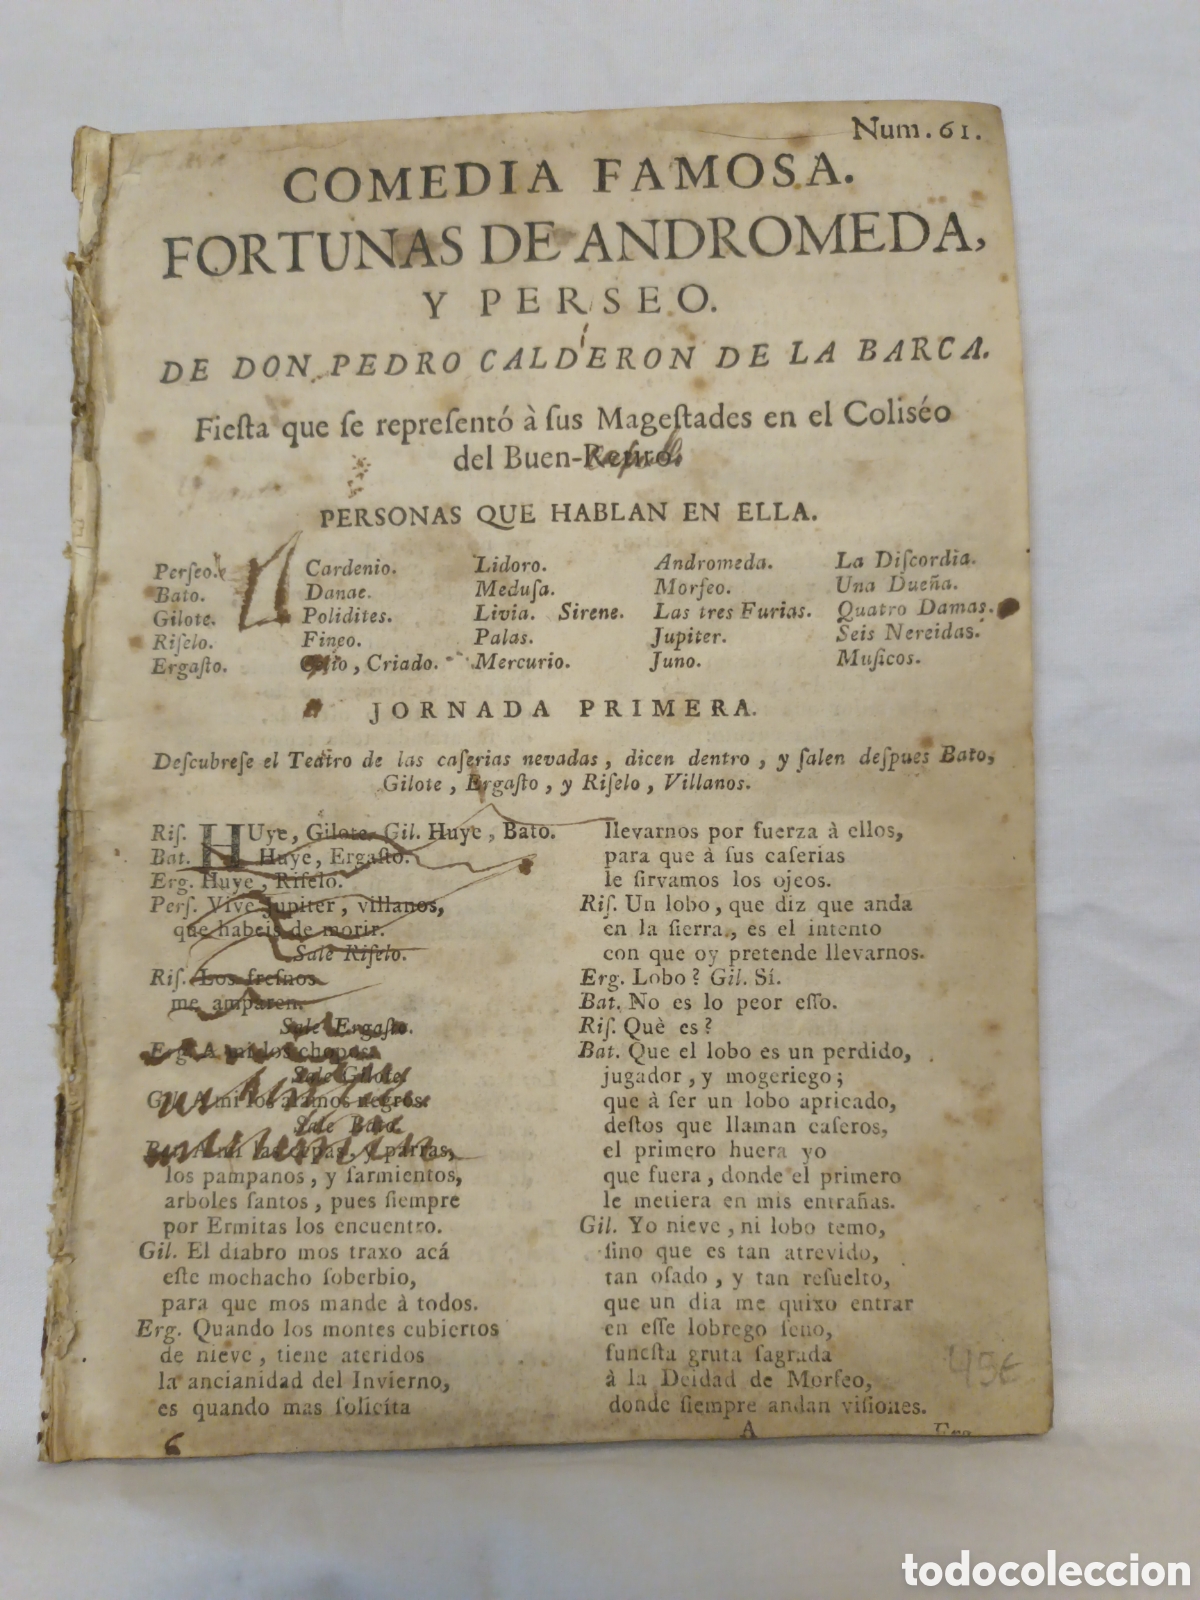 Num. 61.
COMEDIA FAMOSA.
FORTUNAS DE ANDROMEDA,
Y PERSEO.
DE DON PEDRO CALDERON DE LA BARCA.
Fieſta que ſe repreſentó à ſus Mageſtades en el Coliséo
del Buen-Retiro.
PERSONAS QUE HABLAN EN ELLA.
Perſeo.
Bato.
Gilote.
Riſelo.
Ergaſto.
Cardenio.
Danae.
Polidites.
Fineo.
Celio, Criado.
Lidoro.
Meduſa.
Livia. Sirene.
Palas.
Mercurio.
Andromeda.
Morfeo.
Las tres Furias.
Jupiter.
Juno.
La Diſcordia.
Una Dueña.
Quatro Damas.
Seis Nereidas.
Muſicos.
JORNADA PRIMERA.
Deſcubreſe el Teatro de las caſerias nevadas, dicen dentro, y ſalen deſpues Bato,
Gilote, Ergaſto, y Riſelo, Villanos.
Riſ. HUye, Gilote. Gil. Huye, Bato.
Bat. Huye, Ergaſto.
Erg. Huye, Riſelo.
Perſ. Vive Jupiter, villanos,
que habeis de morir.
Sale Riſelo.
Riſ. Los freſnos
me amparen.
Sale Ergaſto.
Erg. A mi los chopos.
Sale Gilote.
Gil. A mi los alamos negros.
Sale Bato.
Bat. A mi las cepas, y parras,
los pampanos, y ſarmientos,
arboles ſantos, pues ſiempre
por Ermitas los encuentro.
Gil. El diabro mos traxo acá
eſte mochacho ſoberbio,
para que mos mande à todos.
Erg. Quando los montes cubiertos
de nieve, tiene ateridos
la ancianidad del Invierno,
es quando mas ſolicita
llevarnos por fuerza à ellos,
para que à ſus caſerias
le ſirvamos los ojeos.
Riſ. Un lobo, que diz que anda
en la ſierra, es el intento
con que oy pretende llevarnos.
Erg. Lobo? Gil. Sí.
Bat. No es lo peor eſſo.
Riſ. Què es?
Bat. Que el lobo es un perdido,
jugador, y mogeriego;
que à ſer un lobo apricado,
deſtos que llaman caſeros,
el primero huera yo
que fuera, donde el primero
le metiera en mis entrañas.
Gil. Yo nieve, ni lobo temo,
ſino que es tan atrevido,
tan oſado, y tan reſuelto,
que un dia me quixo entrar
en eſſe lobrego ſeno,
funeſta gruta ſagrada
à la Deidad de Morfeo,
donde ſiempre andan viſiones.
45€
6
A
Erg.
todocoleccion